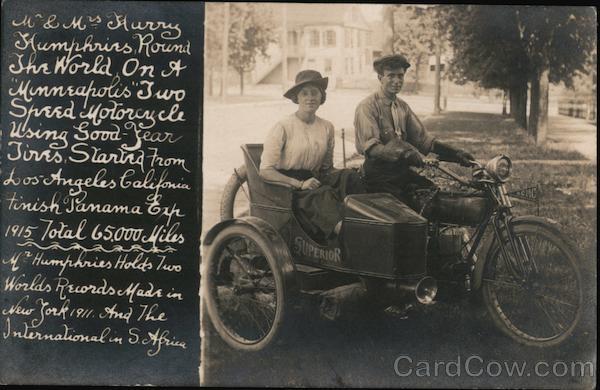 Mr & Mrs Harry
Humphries, Round
The World On A
Minneapolis" Two
Speed Motorcycle
Using Good-Year
Tires, Starting From
Los-Angeles California
Finish Panama Exp
1915 Total 65,000 Miles
Mr Humphries Holds Two
Worlds Records Made in
New York 1911. And The
International in S. Africa
SUPERIOR
CardCow.com